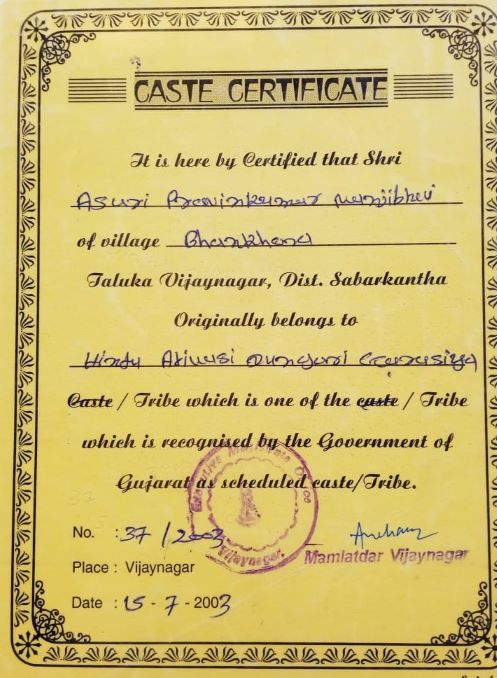 CASTE CERTIFICATE
It is here by Certified that Shri
Asari Pravinkumar Manjibhai
of village Bhankhara
Taluka Vijaynagar, Dist. Sabarkantha
Originally belongs to
Hindu Adivasi Dungari Garasiya
Caste / Tribe which is one of the caste / Tribe
which is recognised by the Government of
Gujarat as scheduled caste/Tribe.
No. : 37 / 2003
Place : Vijaynagar
Mamlatdar Vijaynagar
Date : 15 - 7 - 2003
Vijaynagar.